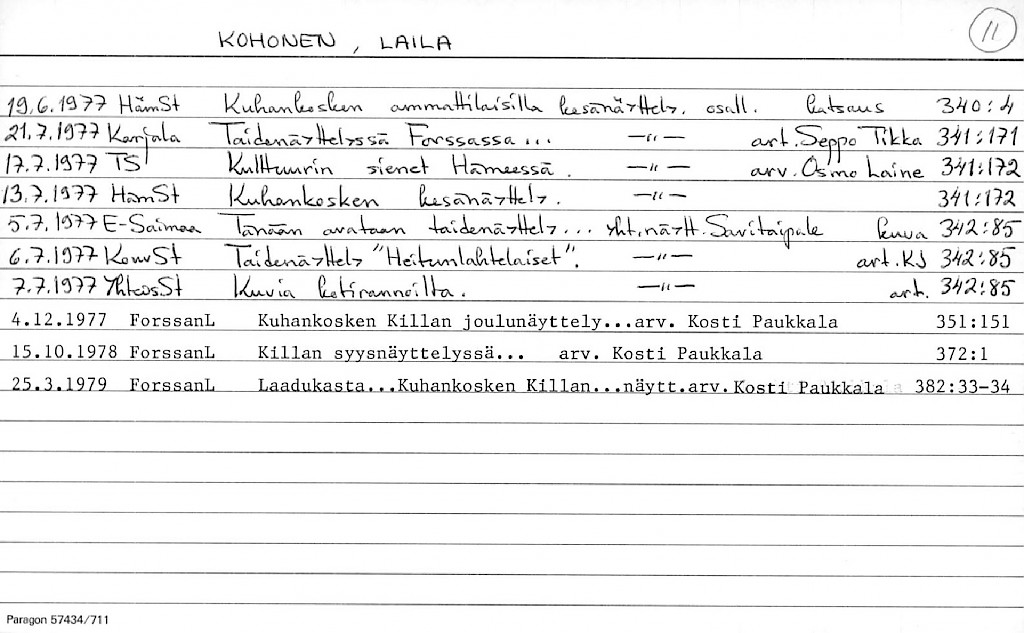 KOHONEN, LAILA
11
19.6.1977 HämSt Kuhankosken ammattilaisilla kesänäyttely. osall. katsaus 340:4
21.7.1977 Karjala Taidenäyttelyssä Forssassa... —"— art. Seppo Tikka 341:171
17.7.1977 TS Kulttuurin sienet Hämeessä. —"— arv. Osmo Laine 341:172
13.7.1977 HämSt Kuhankosken kesänäyttely. —"— 341:172
5.7.1977 E-Saimaa Tänään avataan taidenäyttely... yht.näytt. Savitaipale kuva 342:85
6.7.1977 KouvSt Taidenäyttely "Heitunlahtelaiset". —"— art. KJ 342:85
7.7.1977 YhteisSt Kuvia kotirannoilta. —"— art. 342:85
4.12.1977 ForssanL Kuhankosken Killan joulunäyttely...arv. Kosti Paukkala 351:151
15.10.1978 ForssanL Killan syysnäyttelyssä... arv. Kosti Paukkala 372:1
25.3.1979 ForssanL Laadukasta...Kuhankosken Killan...näytt.arv. Kosti Paukkala 382:33-34
Paragon 57434/711